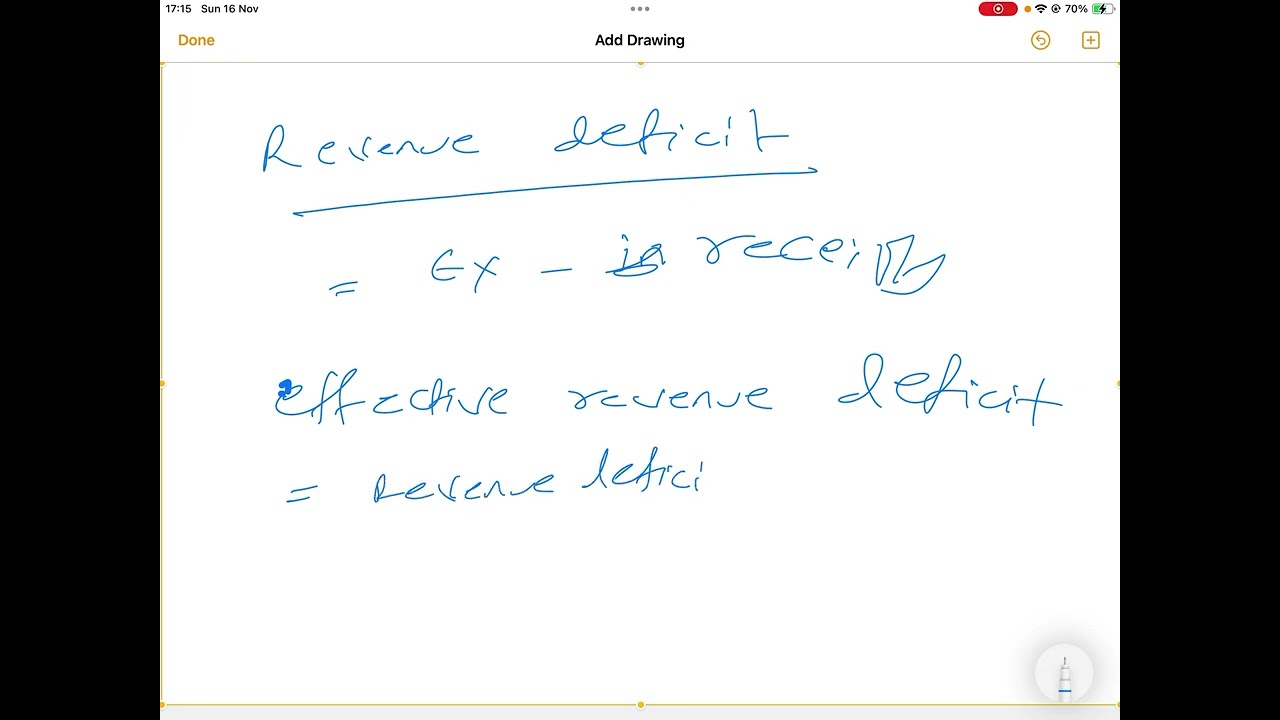 17:15 Sun 16 Nov 70%
Done Add Drawing
Revenue deficit
= Ex -
effective revenue deficit
= Revenue defici